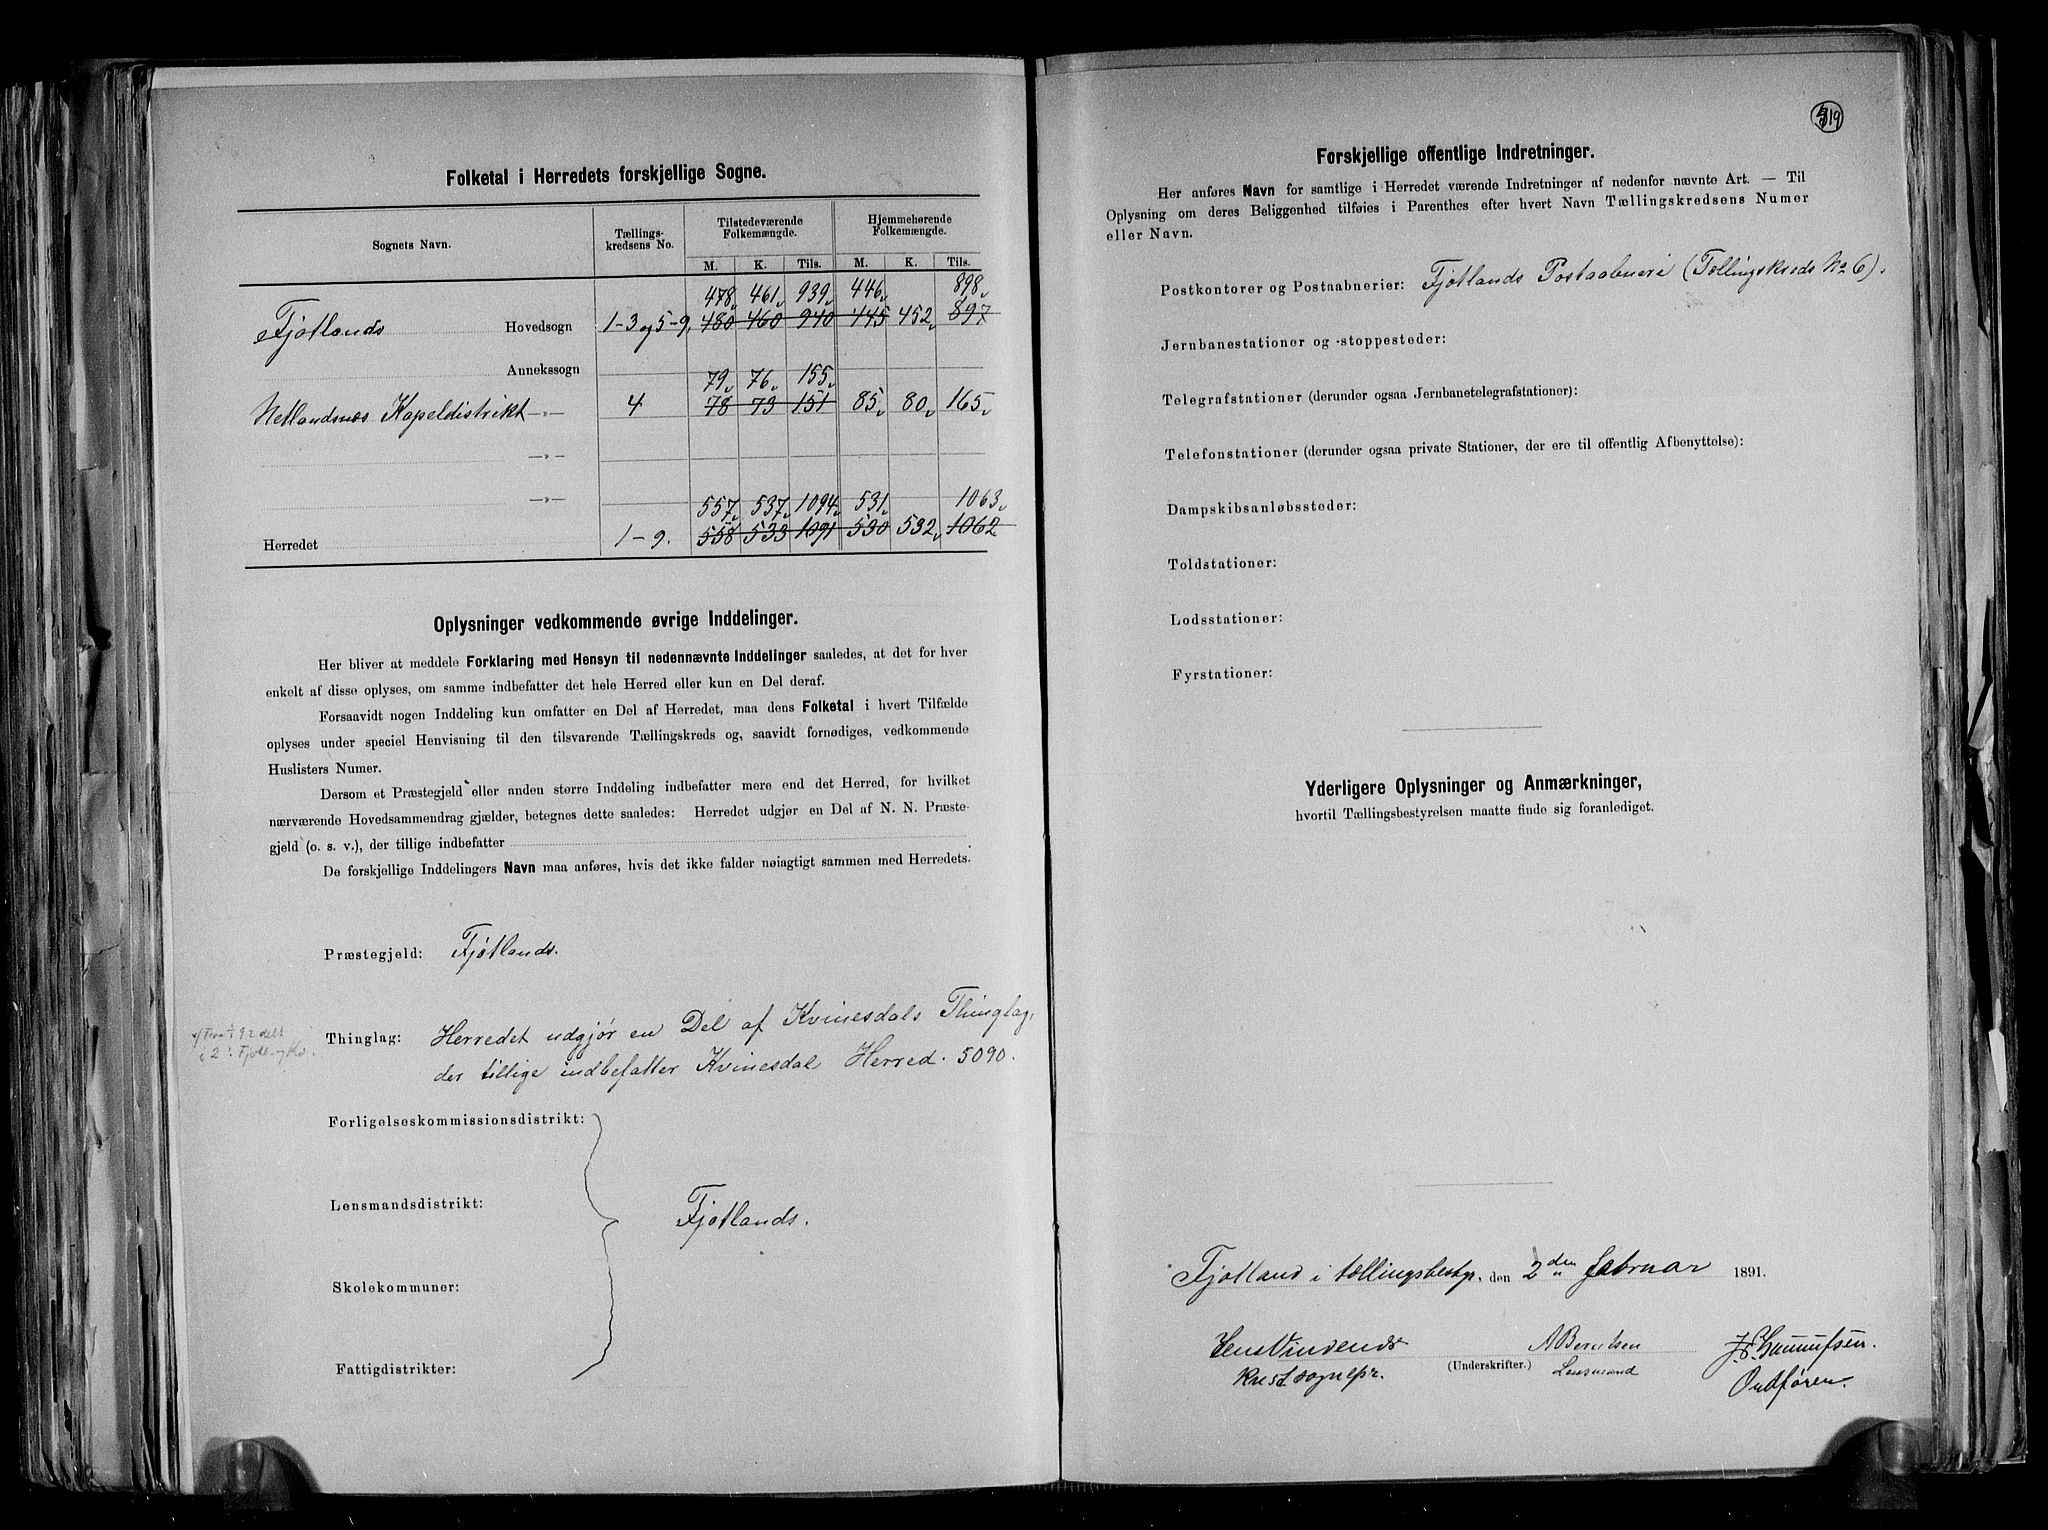 Folketal i Herredets forskjellige Sogne.
Sognets Navn. Tællings- kredsens No. Tilstedeværende Folkemængde. Hjemmehørende Folkemængde.
M. K. Tils. M. K. Tils.
478, 461, 939, 446, 898,
Fjotlands Hovedsogn 1-3 og 5-9, 480 460 940 445 452, 897
Annekssogn
79, 76, 155,
Netlandsnes Kapeldistrikt —»— 4 78 73 151 85, 80, 165,
—»—
—»—
557, 537, 1094, 531, 1063,
Herredet 1-9. 558 533 1091 530 532, 1062
Oplysninger vedkommende øvrige Inddelinger.
Her bliver at meddele Forklaring med Hensyn til nedennævnte Inddelinger saaledes, at det for hver
enkelt af disse oplyses, om samme indbefatter det hele Herred eller kun en Del deraf.
Forsaavidt nogen Inddeling kun omfatter en Del af Herredet, maa dens Folketal i hvert Tilfælde
oplyses under speciel Henvisning til den tilsvarende Tællingskreds og, saavidt fornødiges, vedkommende
Huslisters Numer.
Dersom et Præstegjeld eller anden større Inddeling indbefatter mere end det Herred, for hvilket
nærværende Hovedsammendrag gjælder, betegnes dette saaledes: Herredet udgjør en Del af N. N. Præste-
gjeld (o. s. v.), der tillige indbefatter
De forskjellige Inddelingers Navn maa anføres, hvis det ikke falder nøiagtigt sammen med Herredets.
Præstegjeld: Fjotlands.
Thinglag: Herredet udgjør en Del af Kvinesdals Thinglag,
der tillige indbefatter Kvinesdal Herred. 5090.
Forligelseskommissionsdistrikt:
Lensmandsdistrikt:
Fjotlands.
Skolekommuner:
Fattigdistrikter:
319
Forskjellige offentlige Indretninger.
Her anføres Navn for samtlige i Herredet værende Indretninger af nedenfor nævnte Art. — Til
Oplysning om deres Beliggenhed tilføies i Parenthes efter hvert Navn Tællingskredsens Numer
eller Navn.
Postkontorer og Postaabnerier: Fjotlands Postaabneri (Tællingskreds No 6).
Jernbanestationer og -stoppesteder:
Telegrafstationer (derunder ogsaa Jernbanetelegrafstationer):
Telefonstationer (derunder ogsaa private Stationer, der ere til offentlig Afbenyttelse):
Dampskibsanløbssteder:
Toldstationer:
Lodsstationer:
Fyrstationer:
Yderligere Oplysninger og Anmærkninger,
hvortil Tællingsbestyrelsen maatte finde sig foranlediget.
Fjotland i tællingsbestyr. den 2den februar 1891.
(Underskrifter.)
A Berntsen
Lensmand